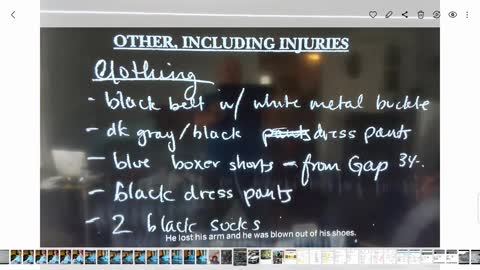 OTHER, INCLUDING INJURIES
Clothing
- black belt w/ white metal buckle
- dk gray/black pants dress pants
- blue boxer shorts - from Gap 34-
- black dress pants
- 2 black socks
He lost his arm and he was blown out of his shoes.